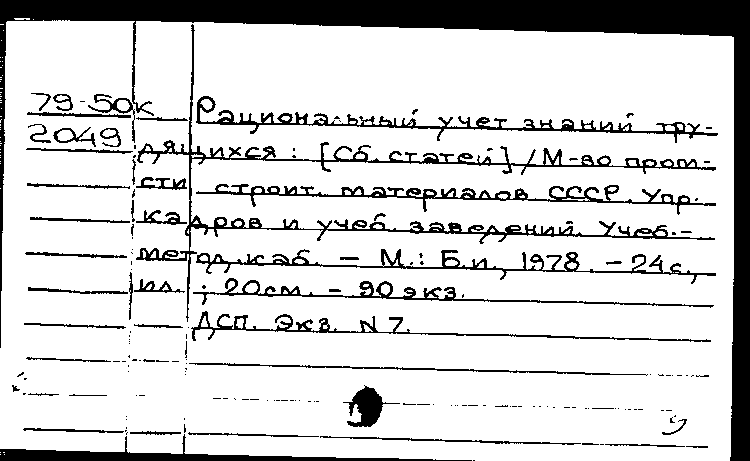 79-50к Рациональный учет знаний тру-
2049 дящихся : [Сб. статей] / М-во пром-
сти строит. материалов СССР. Упр.
кадров и учеб. заведений. Учеб.-
метод. каб. — М.: Б.и., 1978. - 24 с.,
ил. ; 20 см. - 90 экз.
ДСП. Экз. N 7.